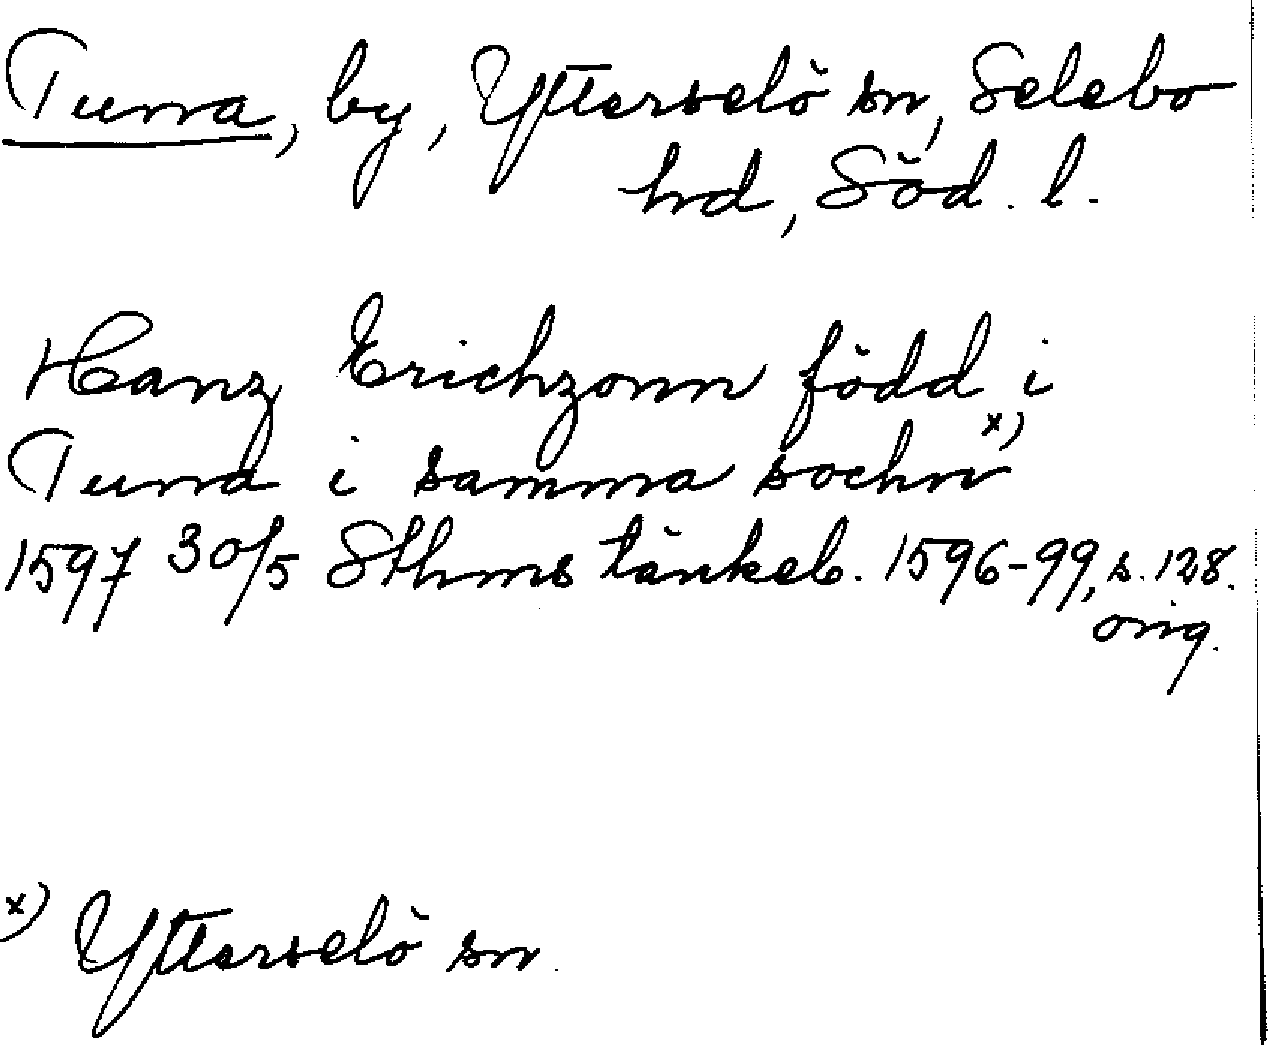 Tuna, by, Ytterselö sn, Selebo
hd, Söd. l.
Hanz Erichzonn född i
Tuna i samma sochn x)
1597 30/5 Sthms tänkeb. 1596-99, s. 128.
orig.
x) Ytterselö sn.